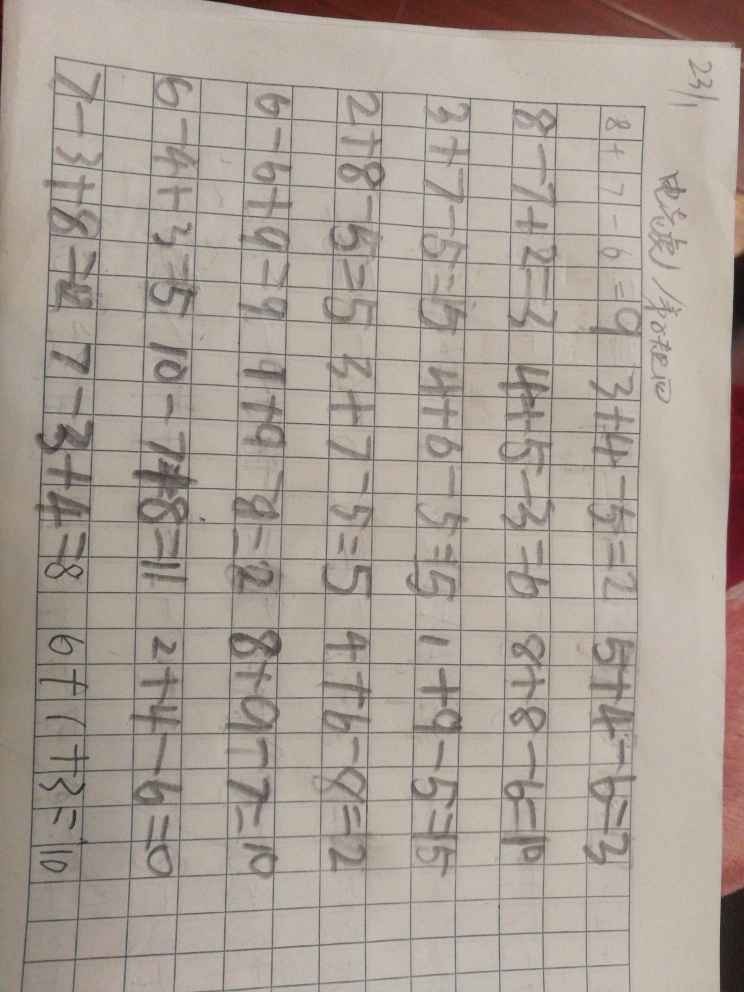 23/1
8+7-6=9 3+4-5=2 5+4-6=3
8-7+2=3 4+5-3=6 8+8-6=10
3+7-5=5 4+6-5=5 1+9-5=5
2+8-5=5 3+7-5=5 4+6-8=2
6-6+9=9 1+9-8=2 8+9-7=10
6-4+3=5 10-7+8=11 2+4-6=0
7-3+8=12 7-3+4=8 6+1+3=10